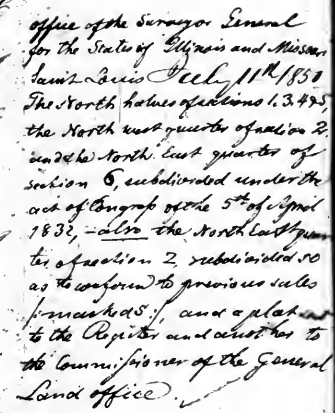 office of the Surveyor General
for the States of Illinois and Missou
Saint Louis July 11th 1850
The North halves of sections 1.3.4&5,
the North west quarter of section 2
and the North East quarter of
section 6, subdivided under the
act of Congress of the 5th of April
1832, - also the North East quar
ter of section 2 subdivided so
as to conform to previous sales
/: marked S :/, and a plat
to the Register and another to
the Commissioner of the General
Land office.